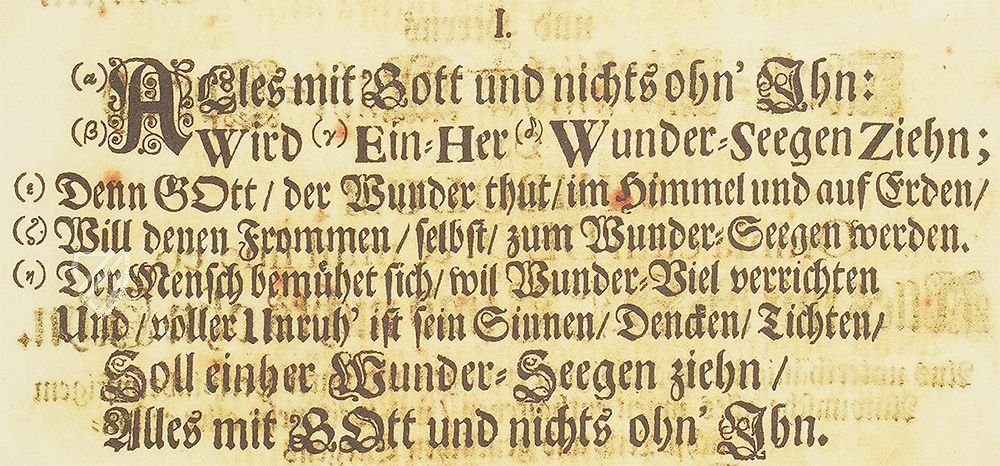 I.
(α) ALles mit Gott und nichts ohn' Ihn:
(β) Wird (γ) Ein-Her (δ) Wunder-Seegen Ziehn;
(ε) Denn GOtt / der Wunder thut / im Himmel und auf Erden /
(ζ) Will denen Frommen / selbst / zum Wunder-Seegen werden.
(η) Der Mensch bemühet sich / wil Wunder-Viel verrichten
Und / voller Unruh' ist sein Sinnen / Dencken / Tichten /
Soll einher Wunder-Seegen ziehn /
Alles mit GOtt und nichts ohn' Ihn.